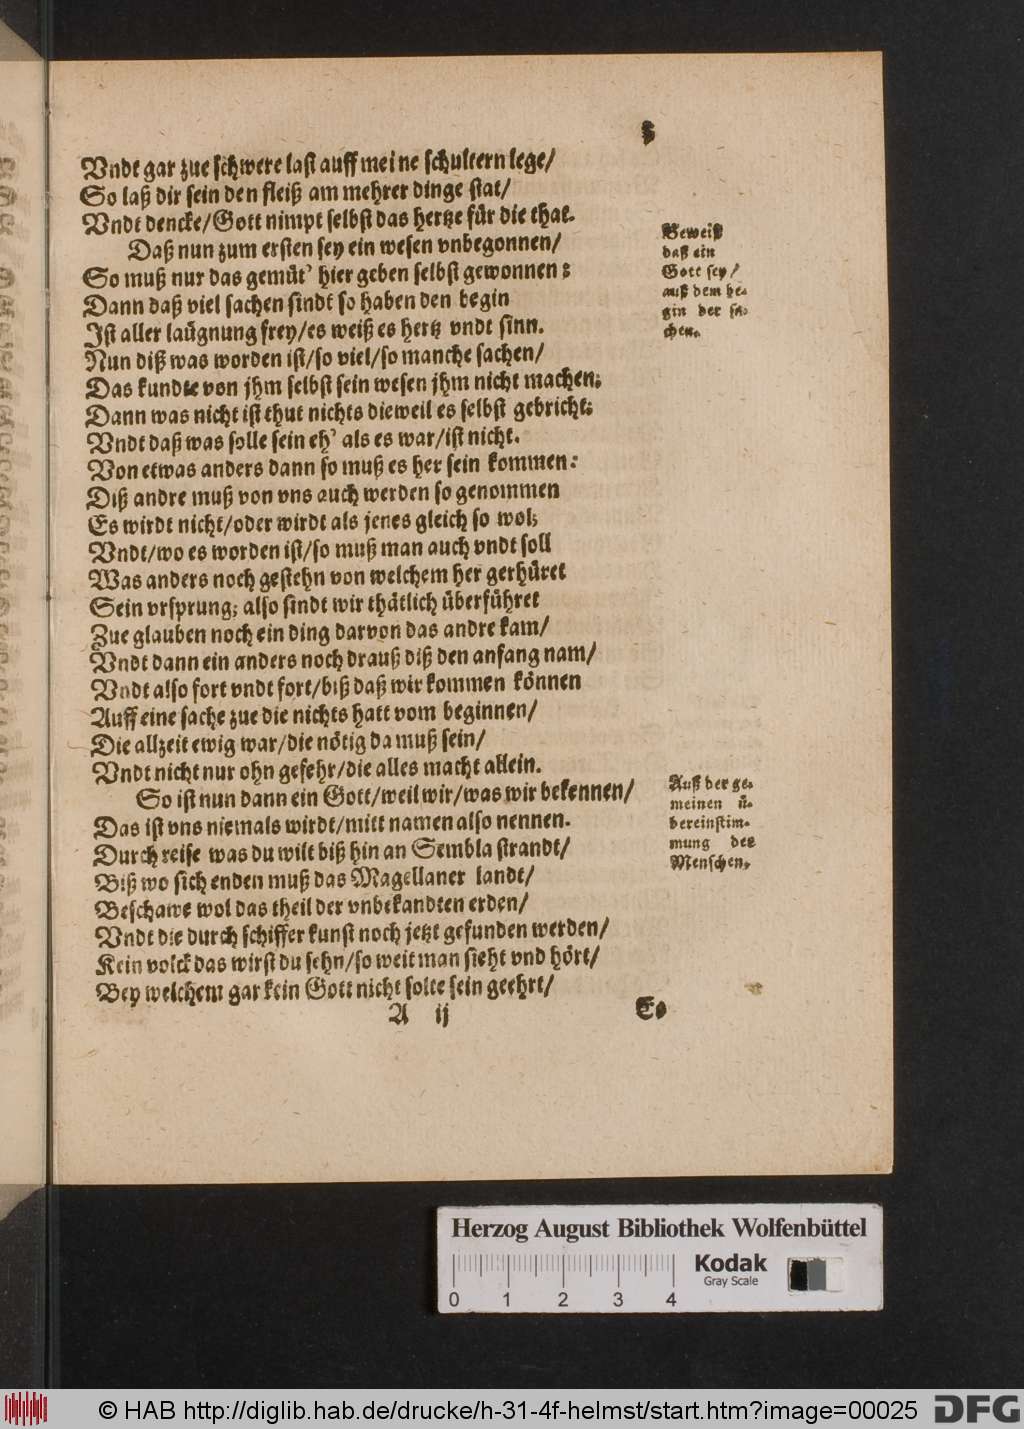 5
Vndt gar zue schwere last auff meine schultern lege/
So laß dir sein den fleiß am mehrer dinge stat/
Vndt dencke/Gott nimpt selbst das hertze für die that.
Daß nun zum ersten sey ein wesen vnbegonnen/
So muß nur das gemüt' hier geben selbst gewonnen:
Dann daß viel sachen sindt so haben den begin
Ist aller laügnung frey/es weiß es hertz vndt sinn.
Nun diß was worden ist/so viel/so manche sachen/
Das kundte von jhm selbst sein wesen jhm nicht machen;
Dann was nicht ist thut nichts dieweil es selbst gebricht:
Vndt daß was solle sein eh' als es war/ist nicht.
Von etwas anders dann so muß es her sein kommen:
Diß andre muß von vns auch werden so genommen
Es wirdt nicht/oder wirdt als jenes gleich so wol;
Vndt/wo es worden ist/so muß man auch vndt soll
Was anders noch gestehn von welchem her gerhüret
Sein vrsprung; also sindt wir thätlich überführet
Zue glauben noch ein ding darvon das andre kam/
Vndt dann ein anders noch drauß diß den anfang nam/
Vndt also fort vndt fort/biß daß wir kommen können
Auff eine sache zue die nichts hatt vom beginnen/
Die allzeit ewig war/die nötig da muß sein/
Vndt nicht nur ohn gefehr/die alles macht allein.
So ist nun dann ein Gott/weil wir/was wir bekennen/
Das ist vns niemals wirdt/mitt namen also nennen.
Durch reise was du wilt biß hin an Sembla strandt/
Biß wo sich enden muß das Magellaner landt/
Beschawe wol das theil der vnbekandten erden/
Vndt die durch schiffer kunst noch jetzt gefunden werden/
Kein volck das wirst du sehn/so weit man sieht vnd hört/
Bey welchem gar kein Gott nicht solte sein geehrt/
A ij
Es
Beweiß
daß ein
Gott sey/
auß dem be-
gin der sa-
chen.
Auß der ge-
meinen ü-
bereinstim-
mung der
Menschen.
Herzog August Bibliothek Wolfenbüttel
Kodak
Gray Scale
0 1 2 3 4
© HAB http://diglib.hab.de/drucke/h-31-4f-helmst/start.htm?image=00025
DFG